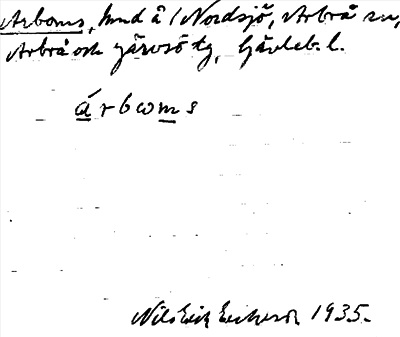 Arboms, hmd å i Nordsjö, Arbrå sn,
Arbrå och Järvsö tg, Gävleb. l.
árbωms
Nils Erik Eriksson 1935.